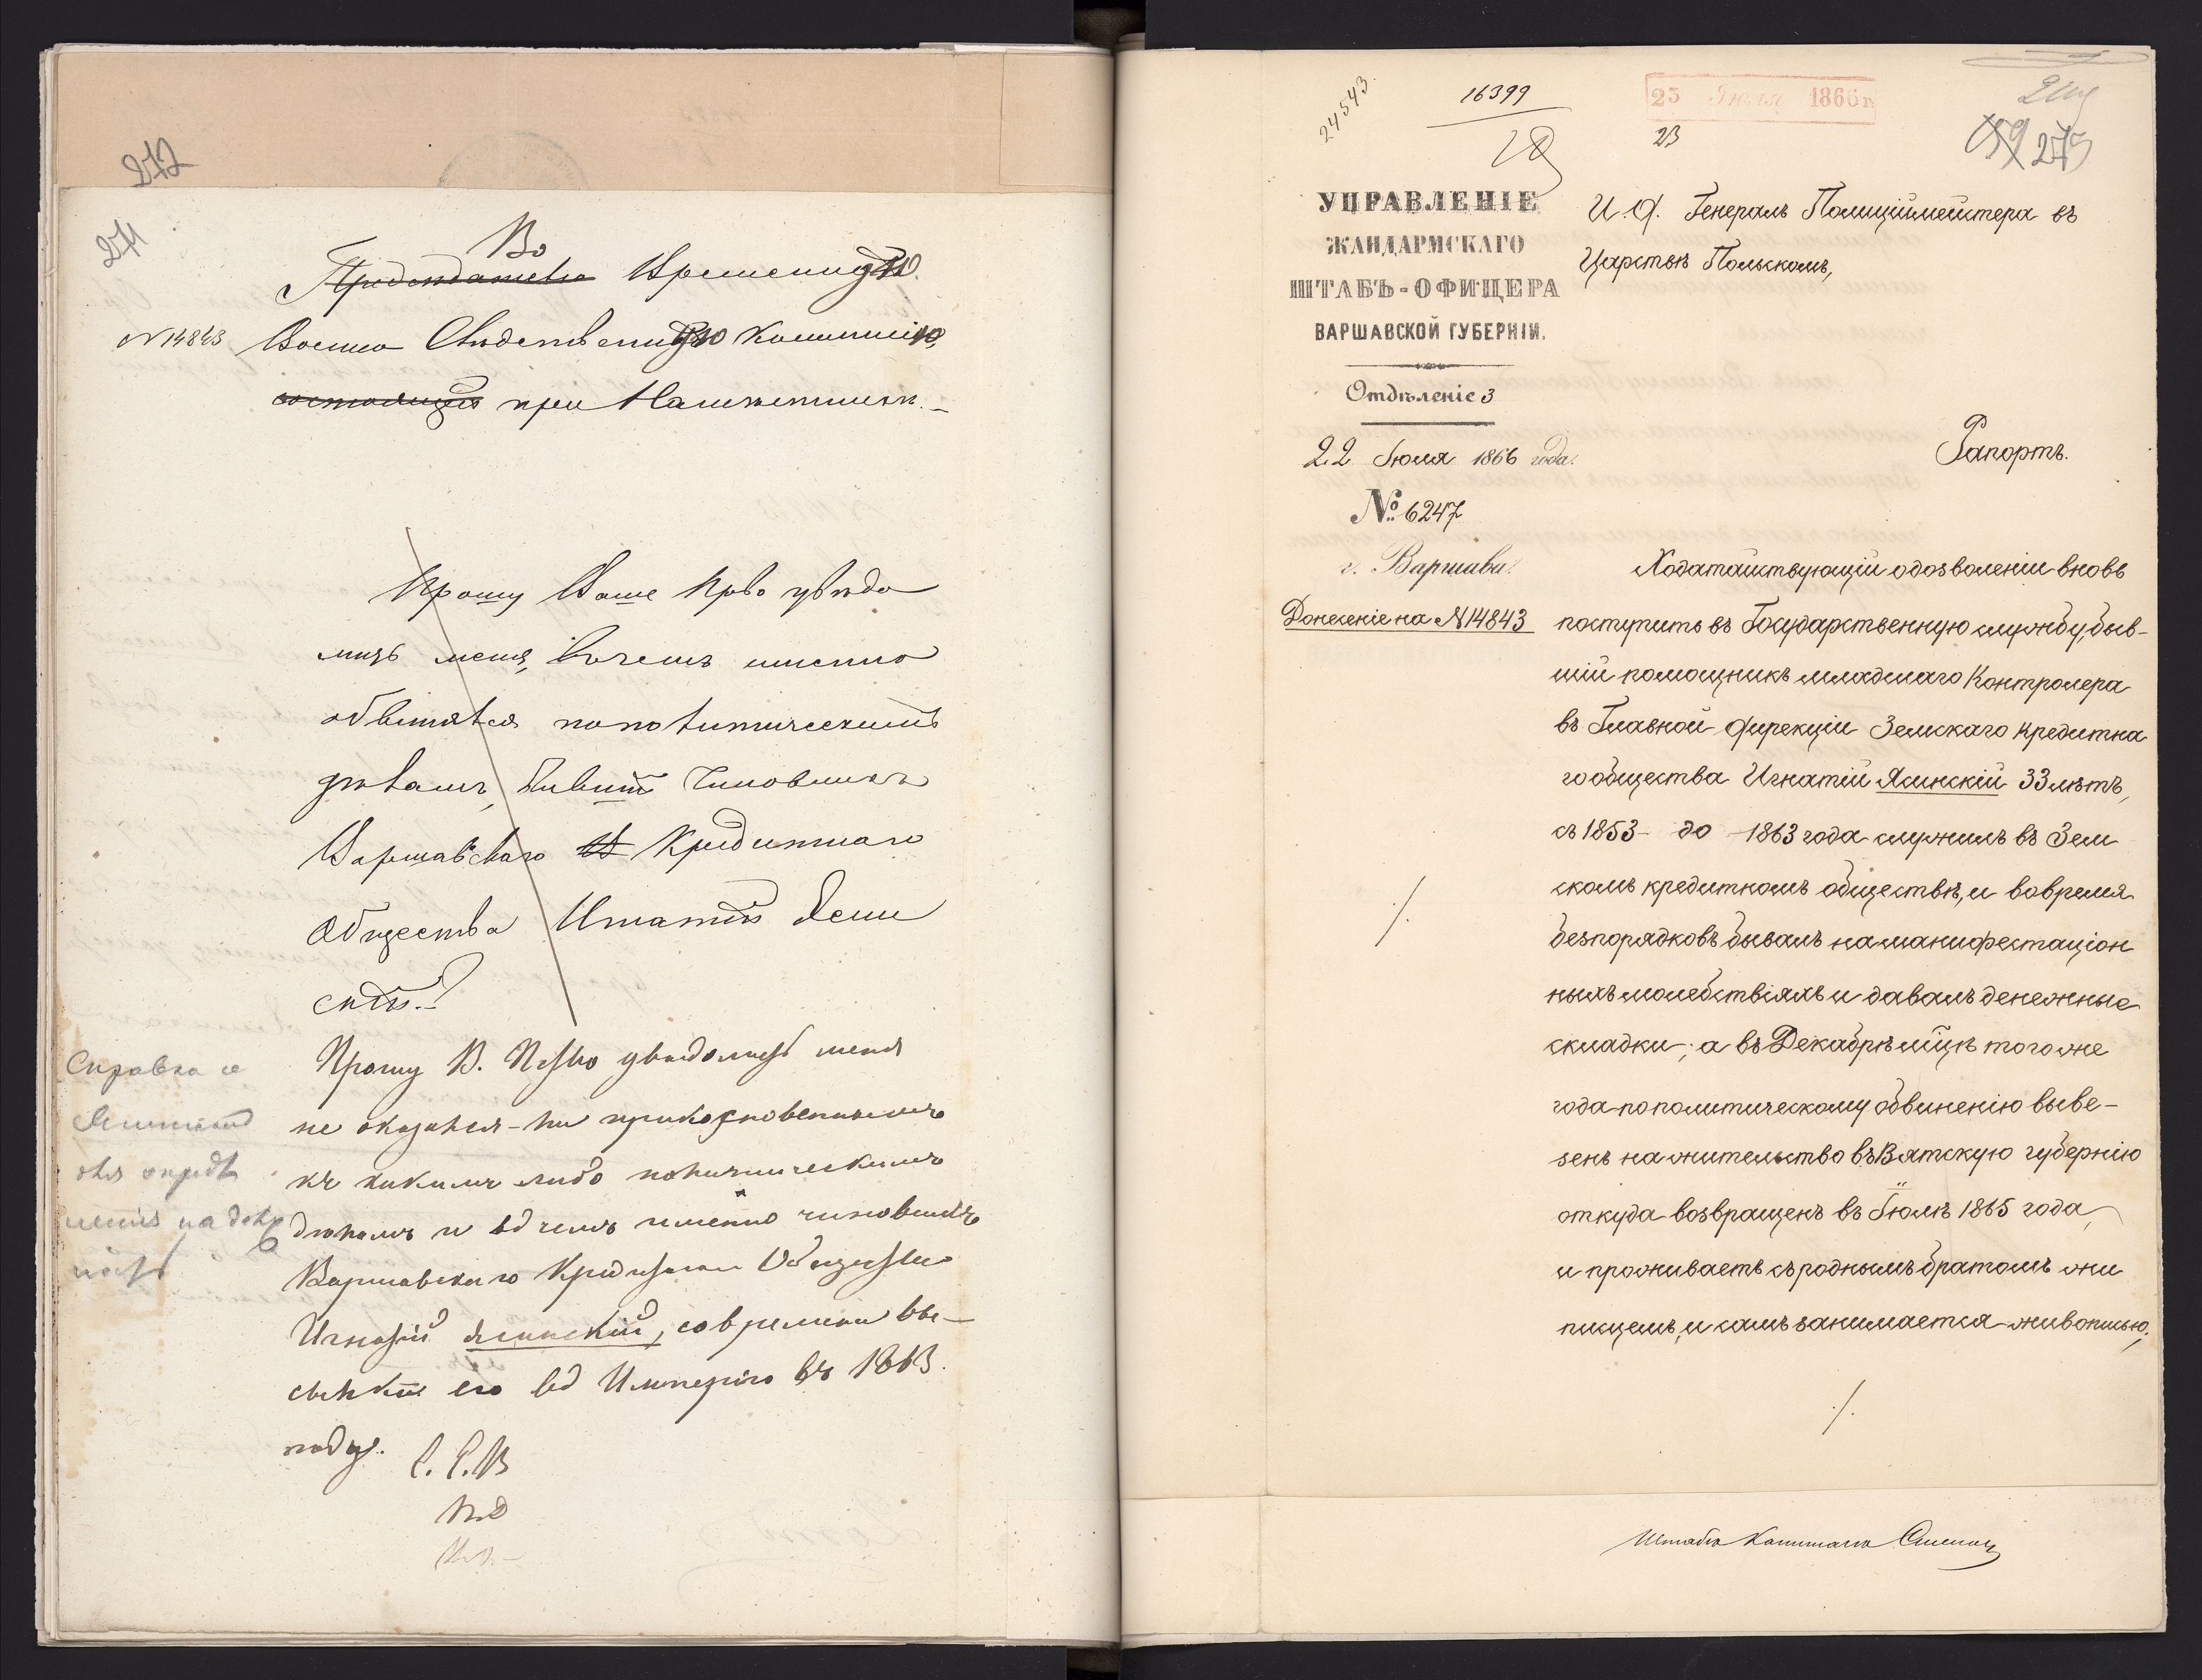 272
271
Во
Предсѣдателю Временную
№ 14843 Военно Слѣдственную Коммиссію,
состоящую при Намѣстникѣ. –
Прошу Ваше Прво увѣдо
мить меня, въ чемъ именно
обвинялся по политическимъ
дѣламъ, бывшій Чиновникъ
Варшавскаго Кредитнаго
Общества Игнатій Ясин
скій.
Прошу В. Пство увѣдомить меня
не оказался-ли прикосновеннымъ
къ какимъ либо политическимъ
дѣламъ и въ чемъ именно чиновникъ
Варшавскаго Кредитнаго Общества
Игнатій Ясинскій, со времени вы-
сылки его въ Имперію въ 1863
году.
Справка о
Ясинскомъ
для опредѣ
ленія на долж
ность
24543.
16399
25 Іюля 1866 г
23
273
УПРАВЛЕНІЕ
ЖАНДАРМСКАГО
ШТАБЪ-ОФИЦЕРА
ВАРШАВСКОЙ ГУБЕРНІИ.
Отдѣленіе 3
22 Іюля 1866 года.
№ 6247
г. Варшава.
Донесеніе на № 14843
И. Д. Генералъ Полиціймейстера въ
Царствѣ Польскомъ,
Рапортъ.
Ходатайствующій о дозволеніи вновь
поступить въ Государственную службу, быв-
шій помощникъ младшаго Контролера
въ Главной Дирекціи Земскаго Кредитна
го общества Игнатій Ясинскій 33 лѣтъ,
съ 1853 – до – 1863 года служилъ въ Зем
скомъ кредитномъ обществѣ, и во время
безпорядковъ бывалъ на манифестаціон
ныхъ молебствіяхъ и давалъ денежные
складки; а въ Декабрѣ мцѣ того же
года по политическому обвиненію выве-
зенъ на жительство въ Вятскую губернію
откуда возвращенъ въ Іюлѣ 1865 года,
и проживаетъ съ роднымъ братомъ жи
писцемъ, и самъ занимается живописью,
Штабсъ Капитанъ